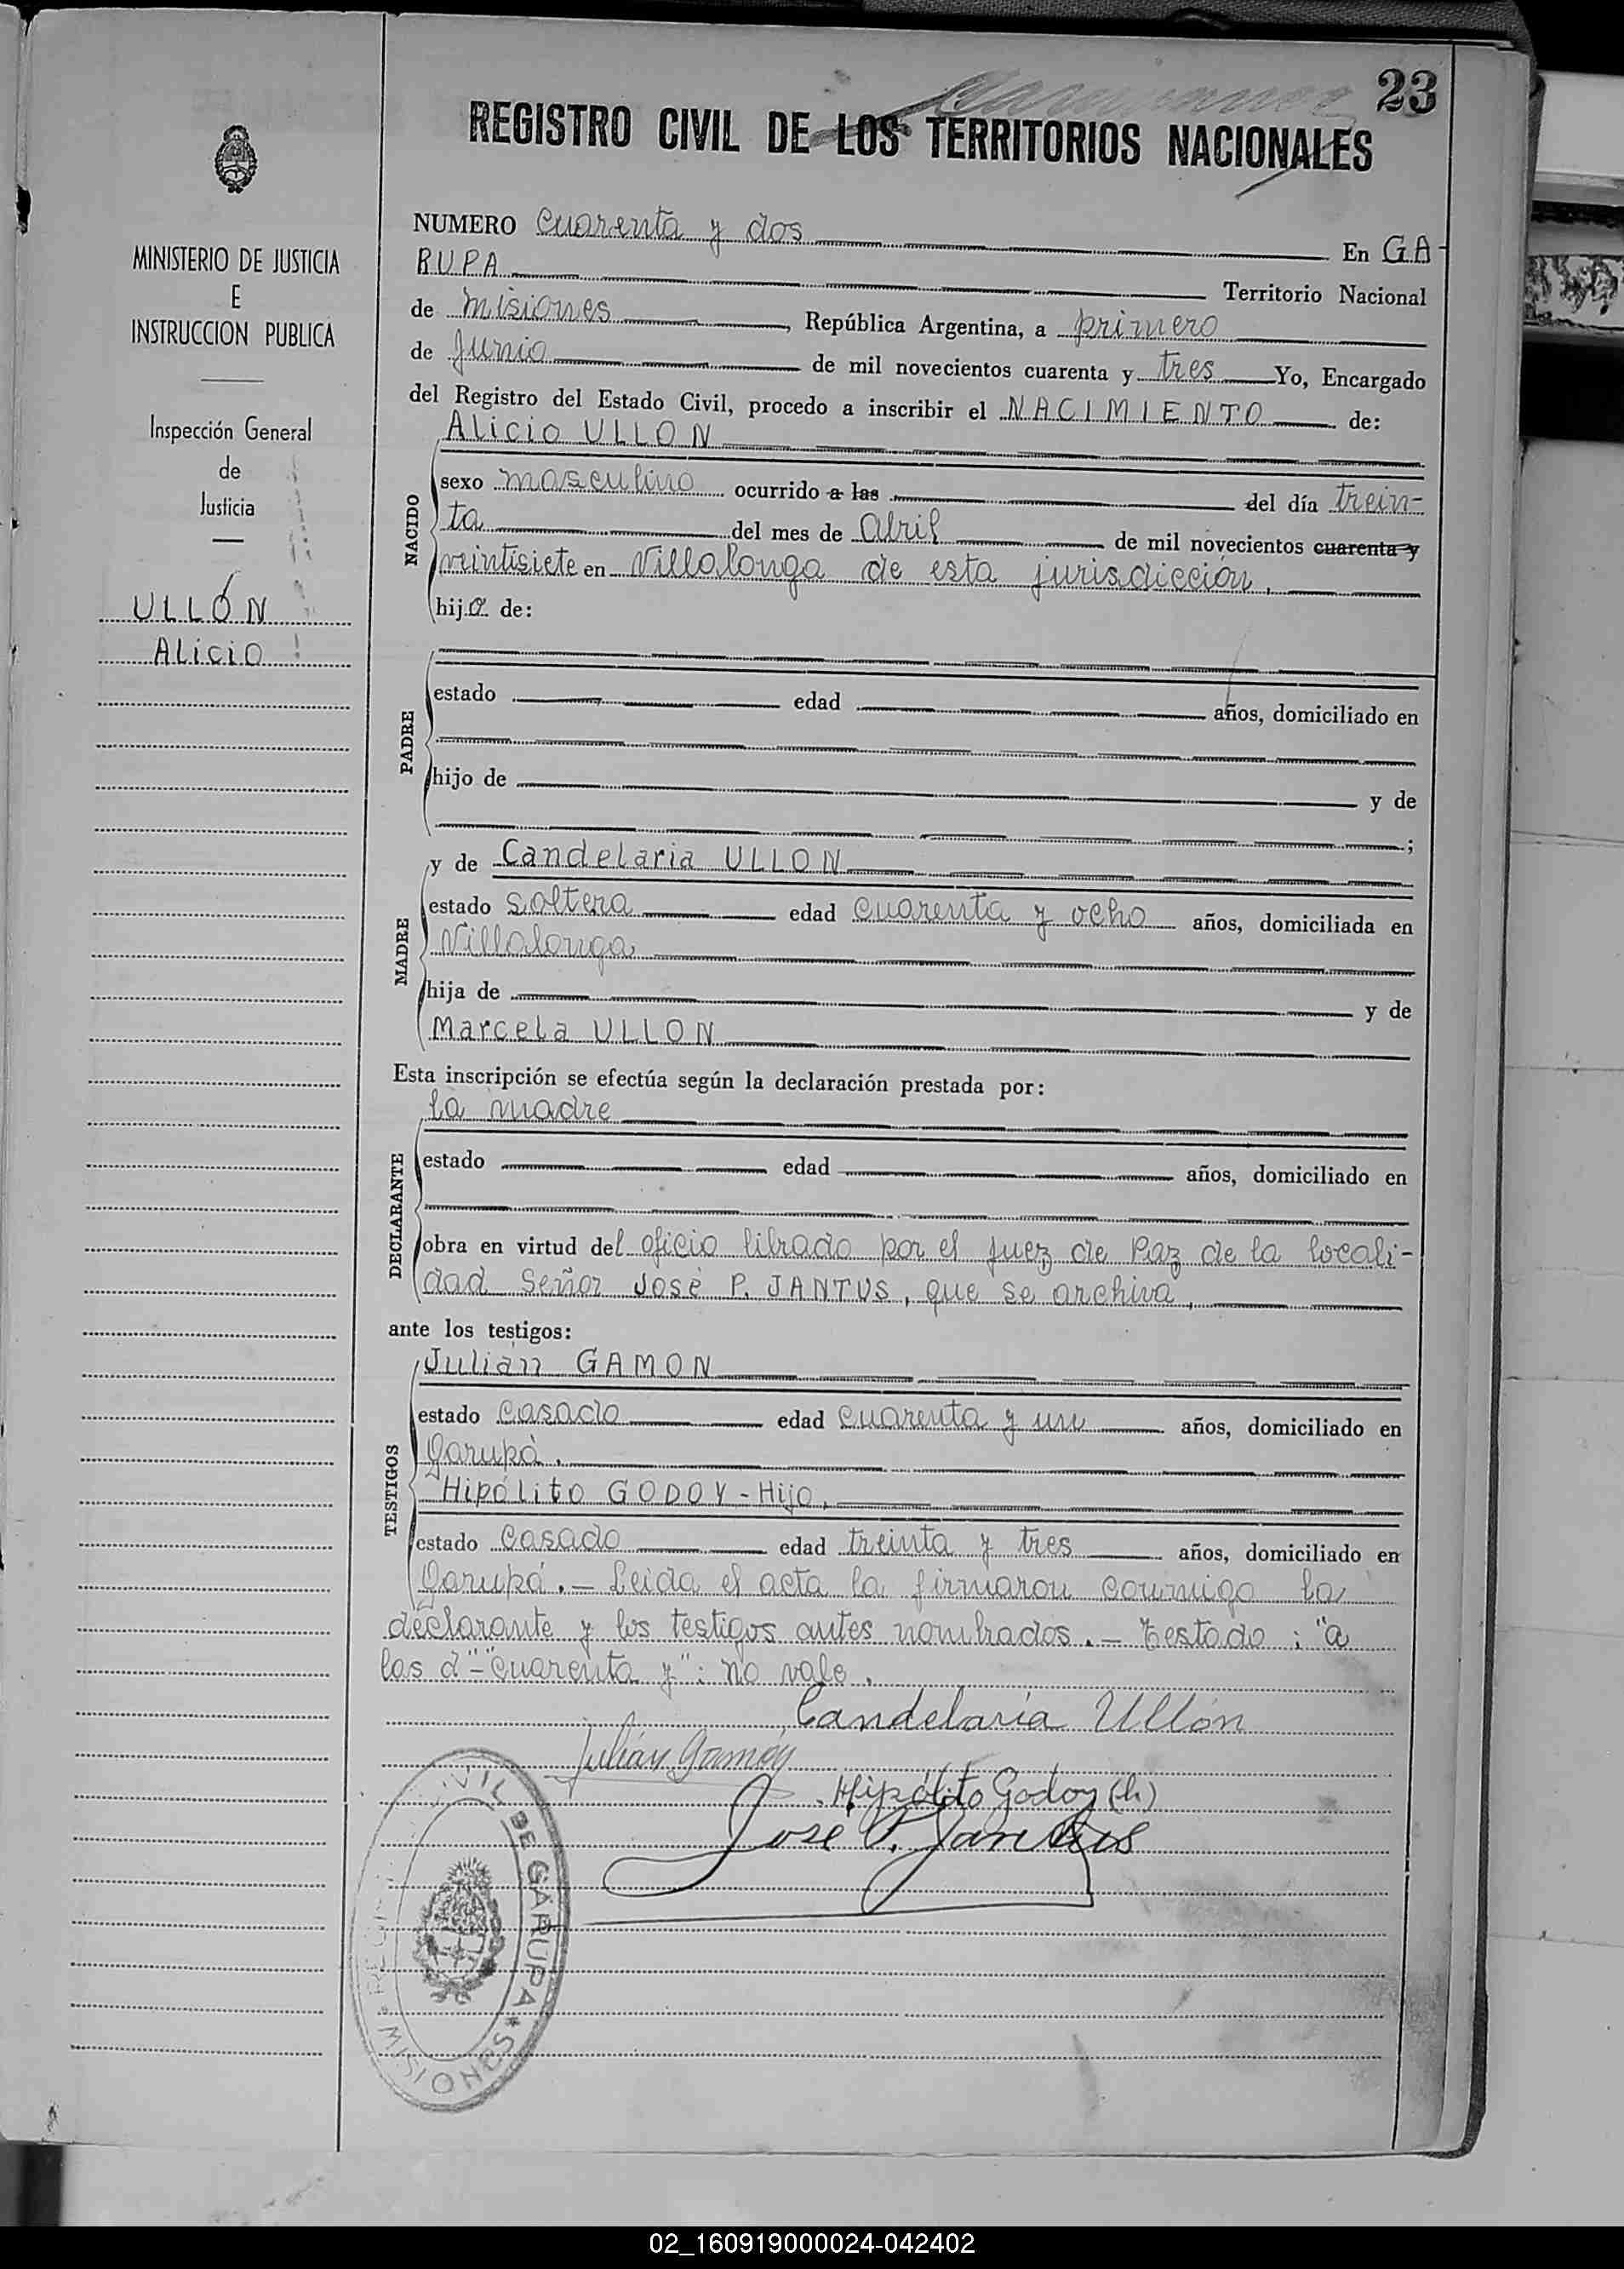 23
REGISTRO CIVIL DE LOS TERRITORIOS NACIONALES
MINISTERIO DE JUSTICIA
E
INSTRUCCION PUBLICA
Inspección General
de
Justicia
ULLÓN
Alicio
NUMERO cuarenta y dos En GA-
RUPA Territorio Nacional
de Misiones, República Argentina, a primero
de Junio de mil novecientos cuarenta y tres Yo, Encargado
del Registro del Estado Civil, procedo a inscribir el NACIMIENTO de:
Alicio ULLON
NACIDO
sexo masculino ocurrido a las del día trein-
ta del mes de Abril de mil novecientos cuarenta y
veintisiete en Villalonga de esta jurisdicción,
hijo de:
PADRE
estado edad años, domiciliado en
hijo de y de
;
MADRE
y de Candelaria ULLON
estado soltera edad cuarenta y ocho años, domiciliada en
Villalonga
hija de y de
Marcela ULLON
Esta inscripción se efectúa según la declaración prestada por:
la madre
DECLARANTE
estado edad años, domiciliado en
obra en virtud del oficio librado por el Juez de Paz de la locali-
dad Señor José P. JANTUS, que se archiva,
ante los testigos:
Julián GAMON
TESTIGOS
estado casado edad cuarenta y un años, domiciliado en
Garupá.
Hipólito GODOY - Hijo,
estado casado edad treinta y tres años, domiciliado en
Garupá. — Leida el acta la firmaron conmigo la
declarante y los testigos antes nombrados. — Testado: "a
las d" - "cuarenta y": no vale.
Candelaria Ullón
Julián Gamón
Hipólito Godoy (h)
José P. Jantus
CIVIL DE GARUPA * MISIONES *
02_160919000024-042402